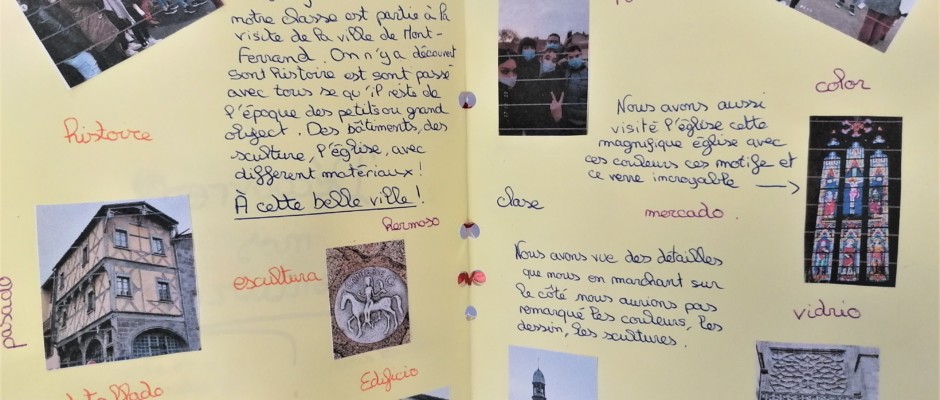 notre classe est partie à la
visite de la ville de Mont-
Ferrand. On n'y a découvert
sont histoire est sont passé
avec tous se qu'il reste de
l'époque des petits ou grand
object. Des bâtiments, des
sculture, l'église, avec
différent matériaux!
À cette belle ville!
histoire
Hermoso
escultura
pasado
Edificio
color
Nous avons aussi
visité l'église cette
magnifique église avec
ces couleurs ces motife et
ce verre incroyable
clase
mercado.
Nous avons vue des détailles
que nous en marchant sur
le côté nous aurions pas
remarqué les couleurs, les
dessin, les scultures.
vidrio